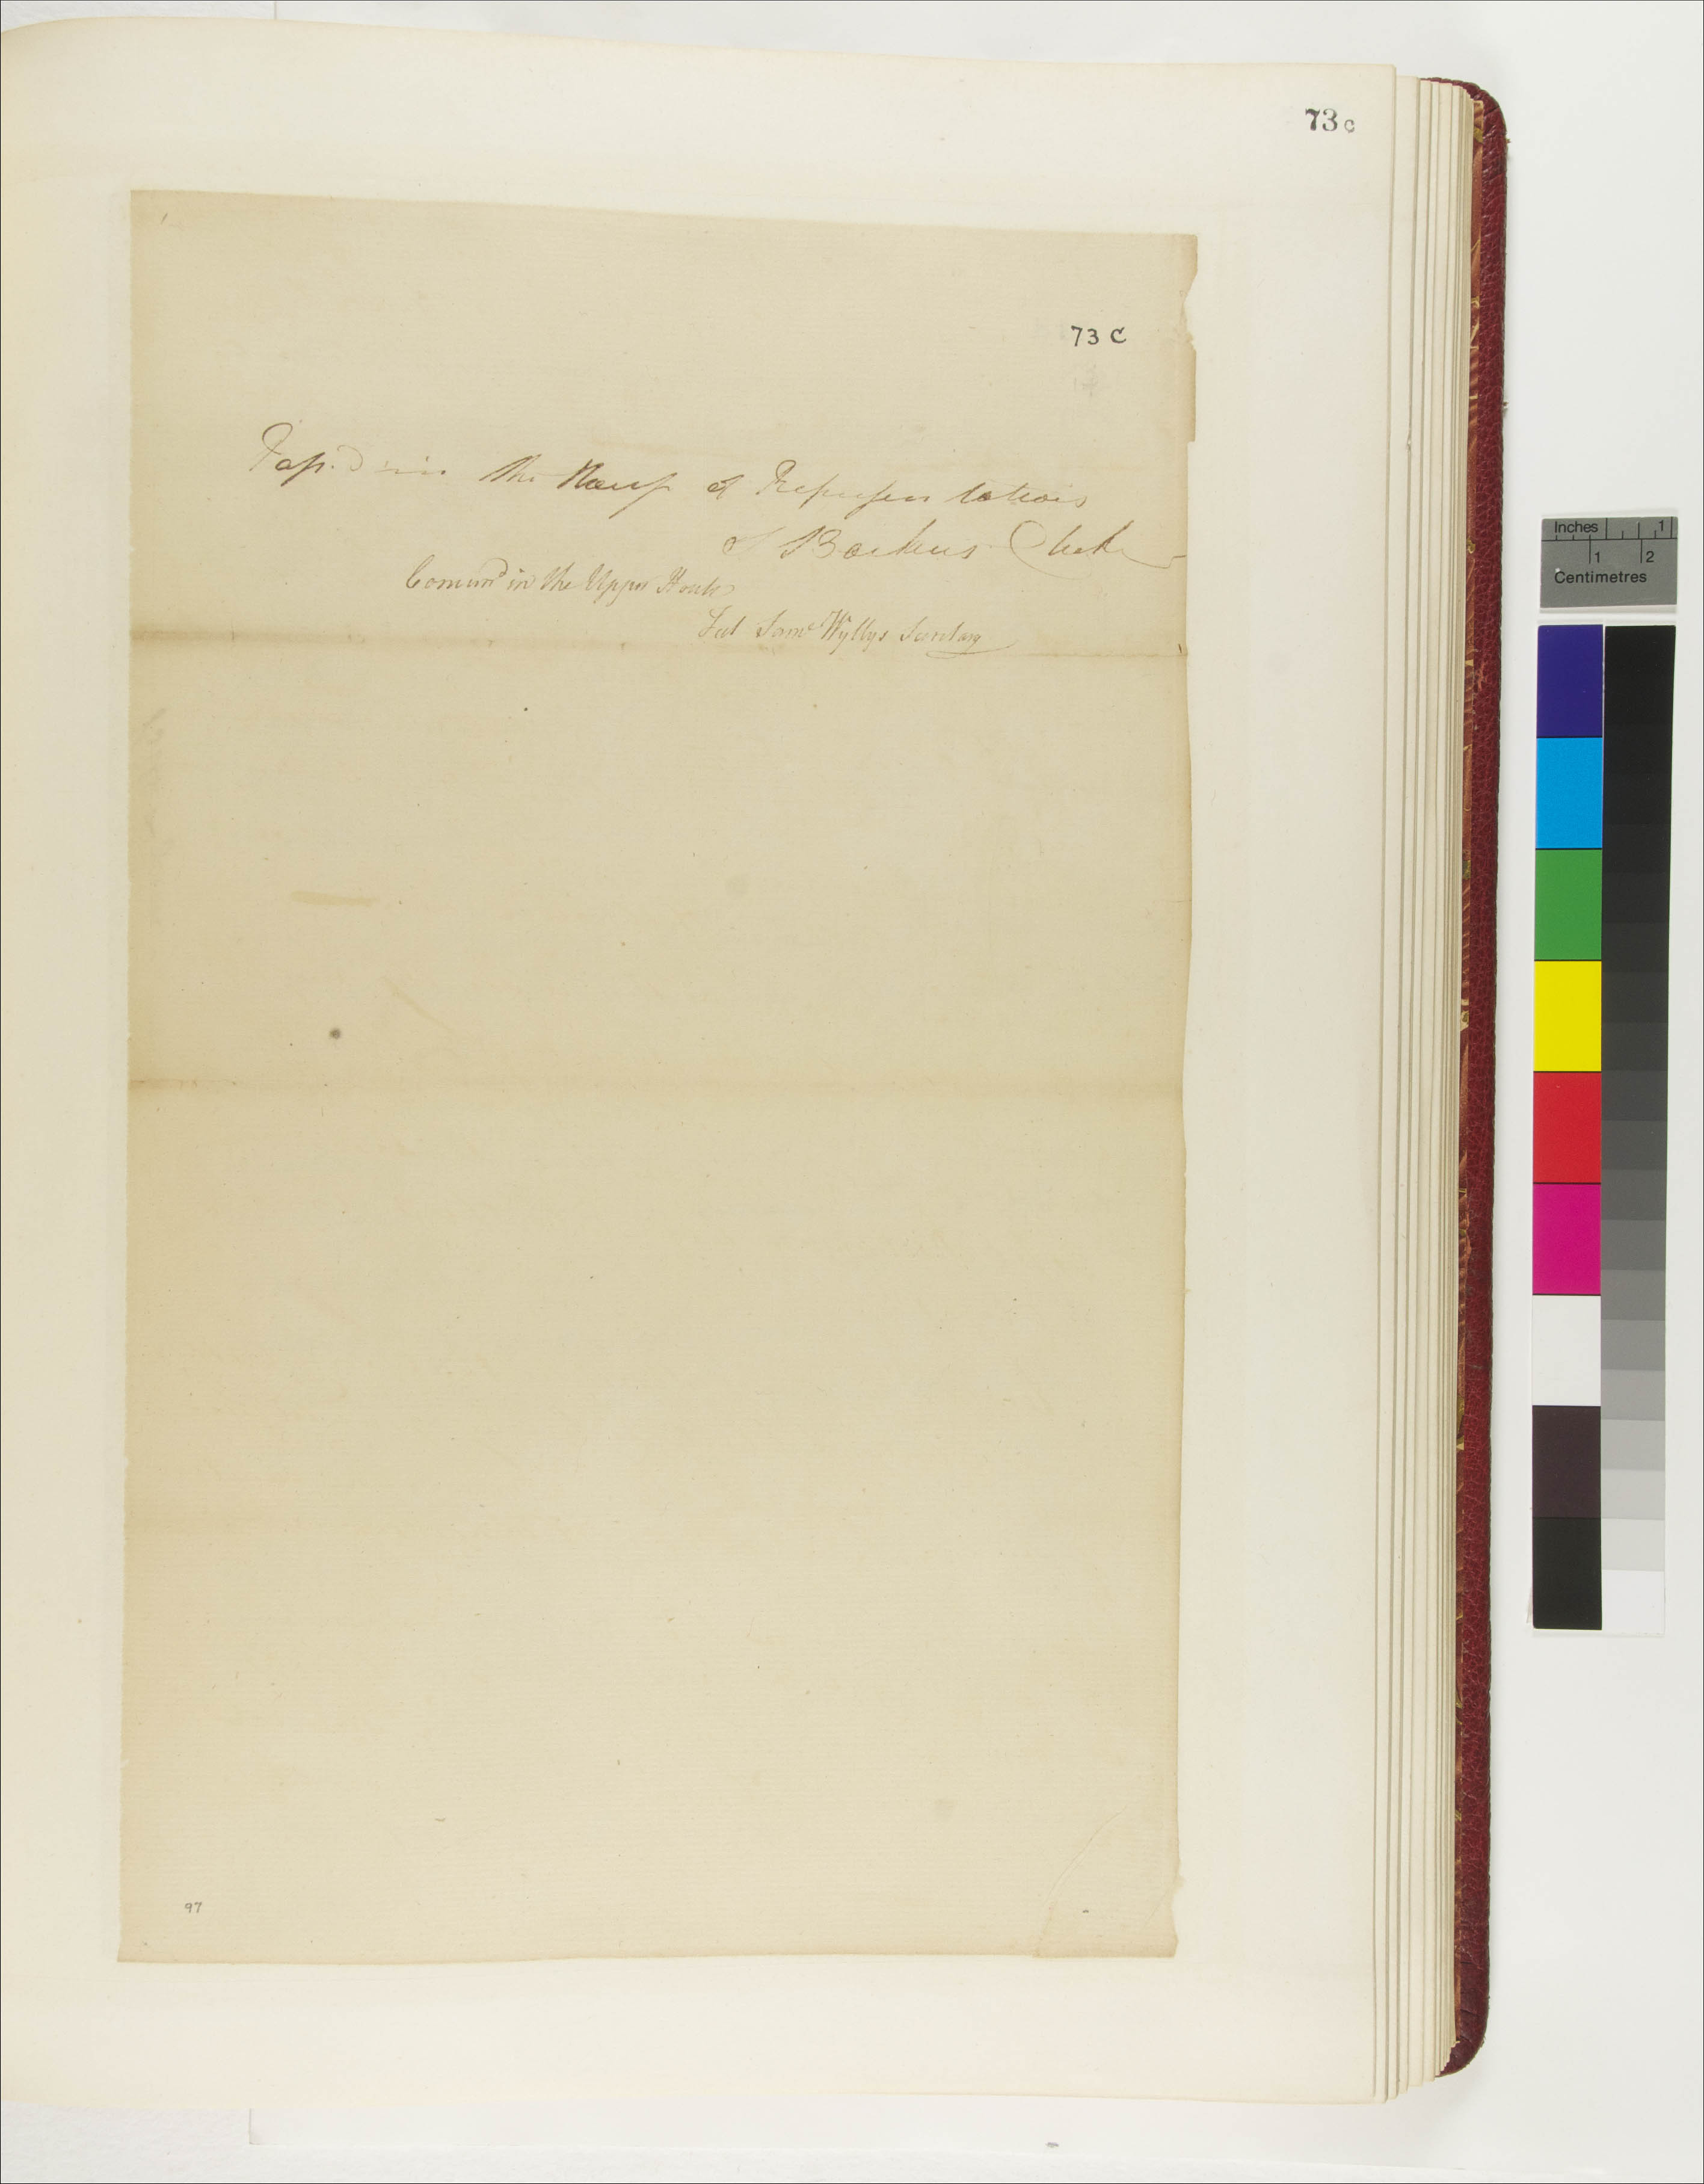 73c
73 C
Pass.d in the House of Representatives
Backus Clerk
Concurrd in the Upper House
Test Saml Wyllys Secretary
97
Inches 1
1 2
Centimetres